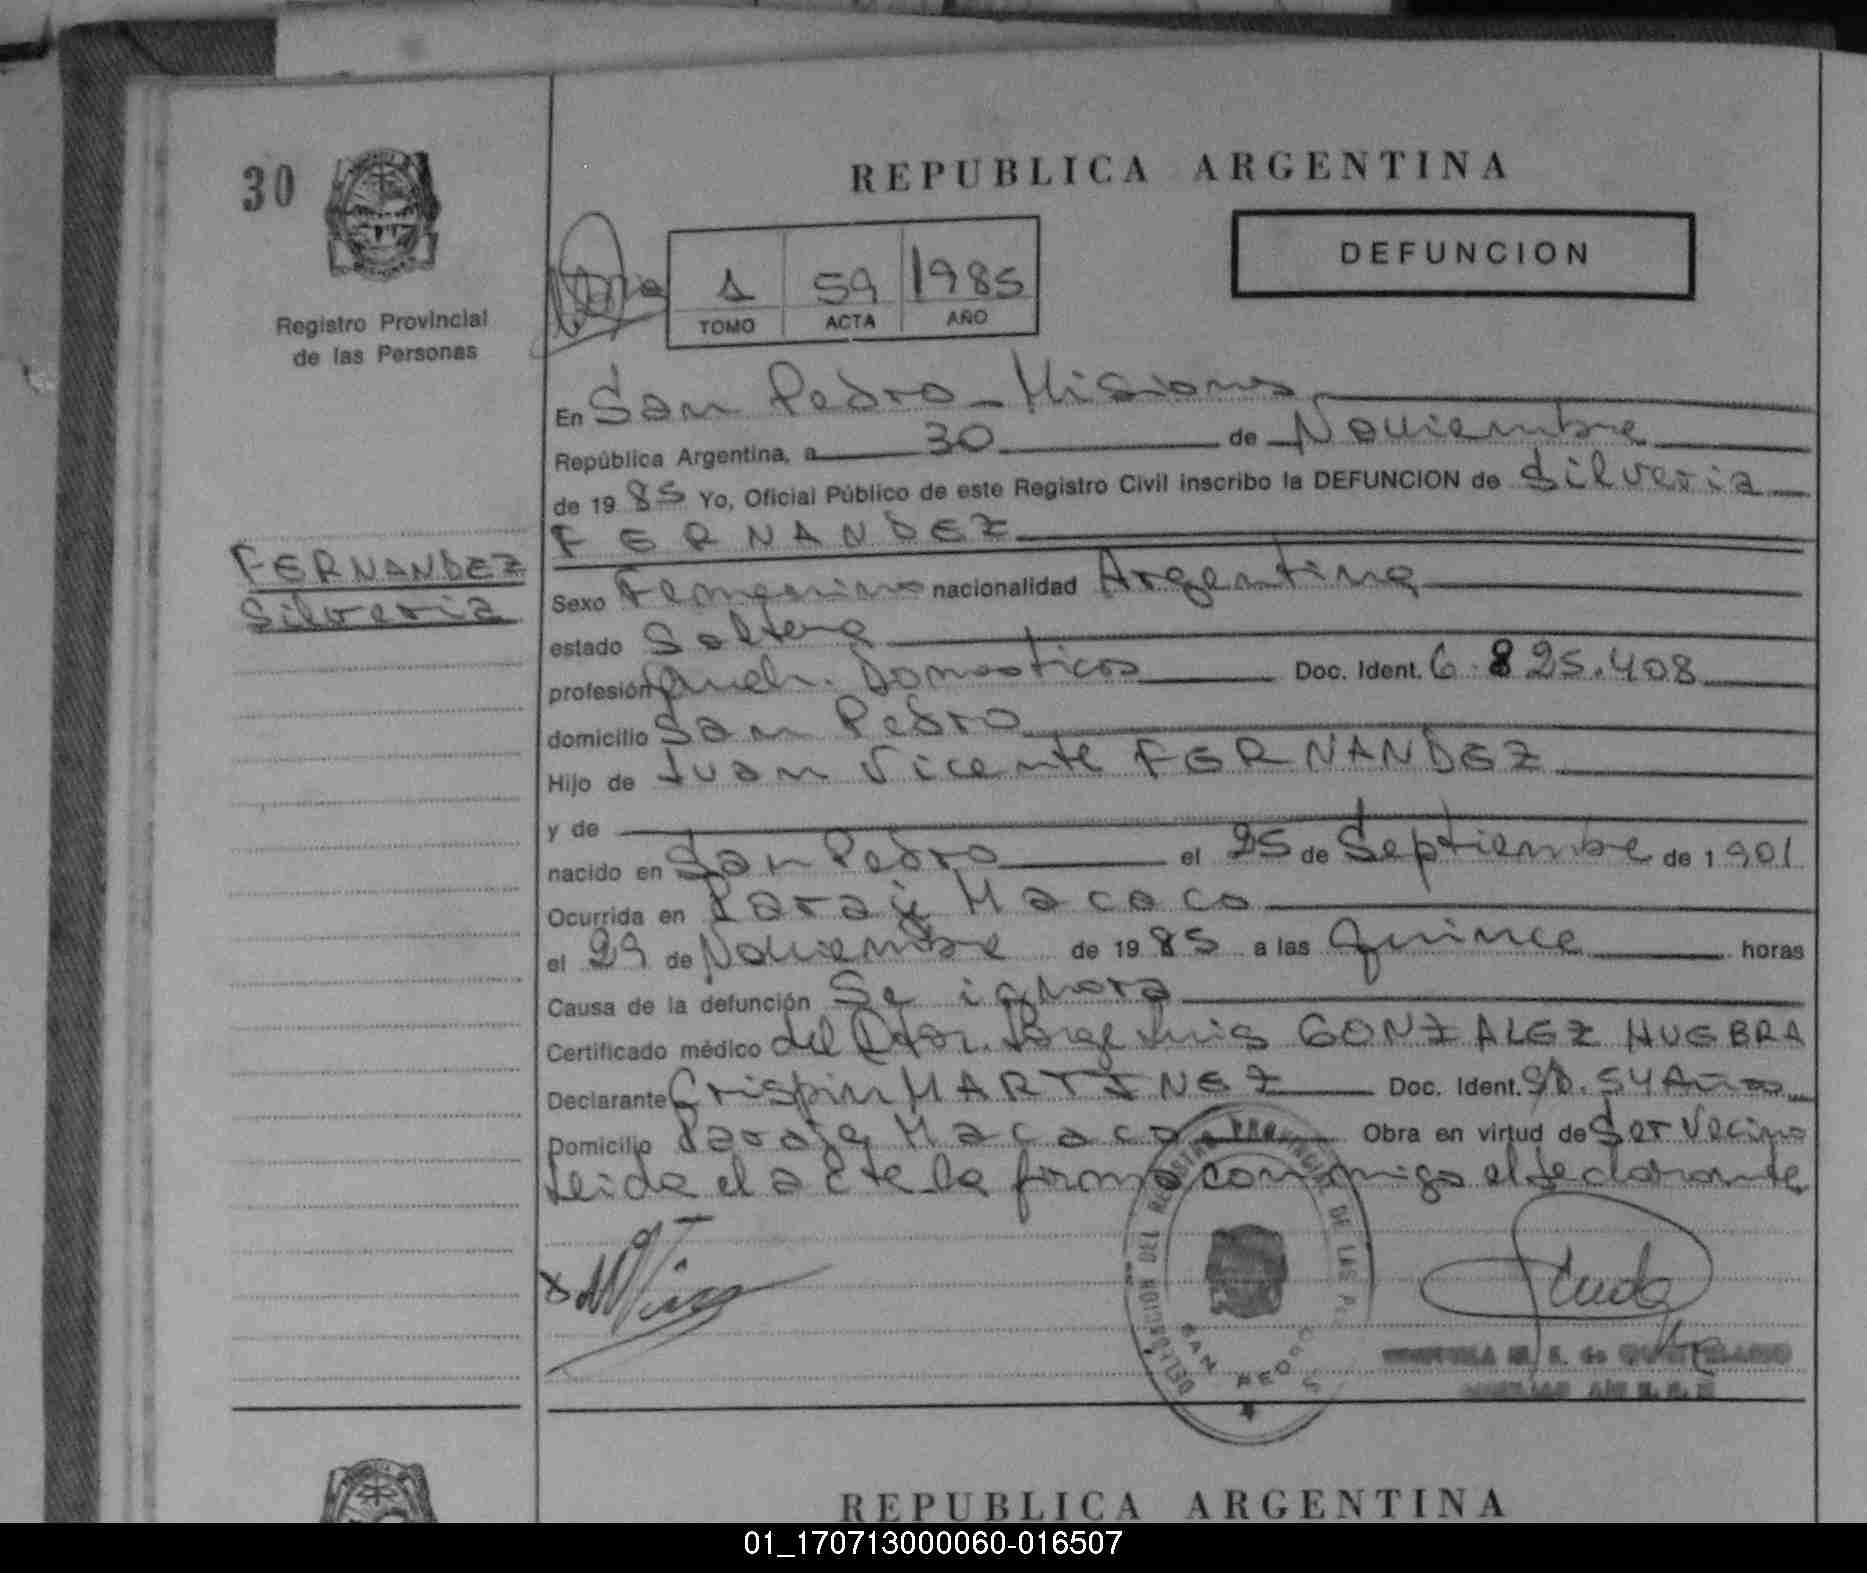 30
REPUBLICA ARGENTINA
DEFUNCION
1 59 1985
TOMO ACTA AÑO
Registro Provincial
de las Personas
En San Pedro - Misiones
República Argentina, a 30 de Noviembre
de 1985 Yo, Oficial Público de este Registro Civil inscribo la DEFUNCION de Silveria
FERNANDEZ
FERNANDEZ
Silveria
Sexo Femenino nacionalidad Argentina
estado Soltera
profesión Queh. Domesticos Doc. Ident. 6.825.408
domicilio San Pedro
Hijo de Juan Vicente FERNANDEZ
y de
nacido en San Pedro el 25 de Septiembre de 1901
Ocurrida en Paraje Macaco
el 29 de Noviembre de 1985 a las quince horas
Causa de la defunción Se ignora
Certificado médico del Dtor. Jorge Luis GONZALEZ HUEBRA
Declarante Crispin MARTINEZ Doc. Ident. SD. 54 Años
Domicilio Paraje Macaco Obra en virtud de Ser Vecino
Leida el acta la firma conmigo el declarante
DELEGACION DEL REGISTRO PROVINCIAL DE LAS
SAN PEDRO
REPUBLICA ARGENTINA
01_170713000060-016507